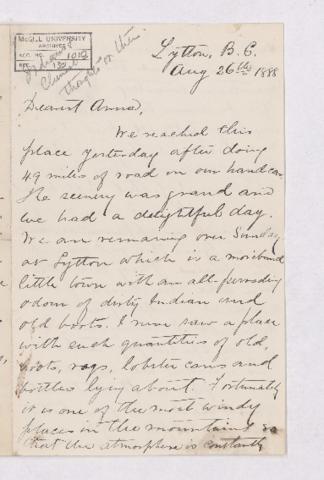 McGILL UNIVERSITY
ARCHIVES
ACC. NO. 1012
REF.
Lytton, B.C.
Aug 26th 1888
Dearest Anna,
We reached this
place yesterday after doing
49 miles of road on our handcar.
The scenery was grand and
we had a delightful day.
We are remaining over Sunday
at Lytton which is a moribund
little town with an all-pervading
odour of dirty Indian and
old boots. I never saw a place
with such quantities of old
boots, rags, lobster cans and
bottles lying about. Fortunately
it is one of the most windy
places in the mountains so
that the atmosphere is constantly